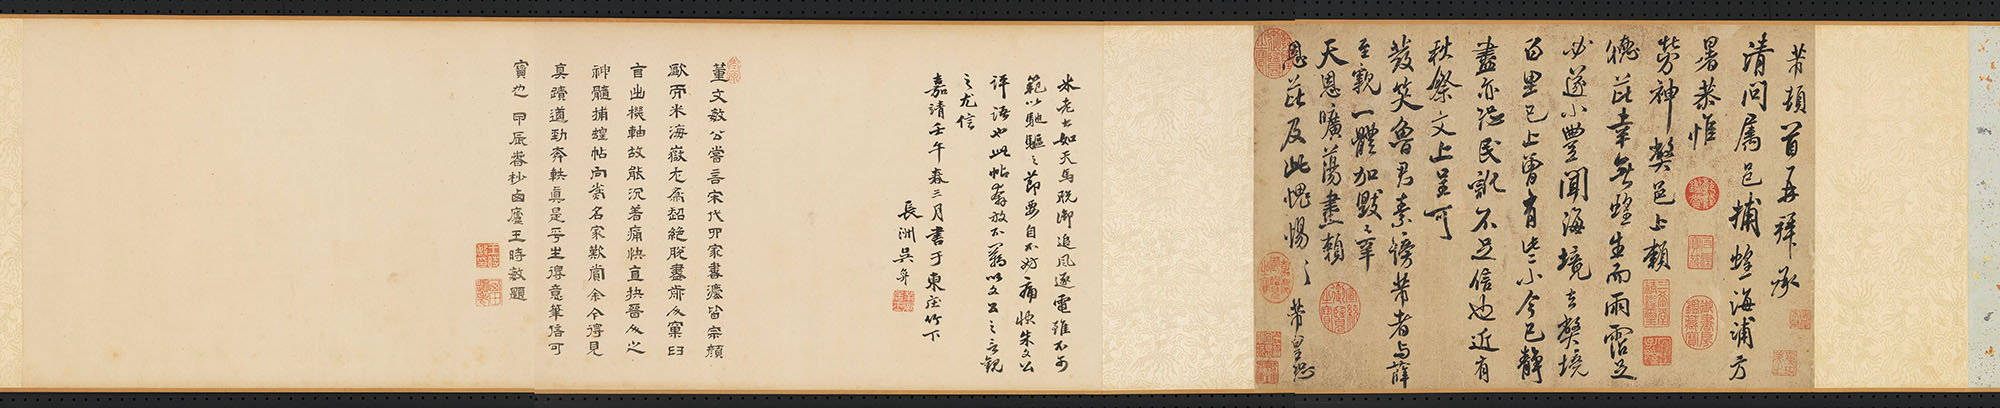 芾頓首再拜承
清問属邑捕蝗海浦方
暑恭惟
勞神 弊邑上賴
德芘幸無蝗生而雨霑足
必遂小豐聞海境去弊境
百里已上曾有些小今已靜
盡亦恐民訛不足信也近有
秋祭文上呈可
發笑魯君素謗芾者与薛
至親一體加毀之辜
天恩曠蕩盡賴
恩芘及此愧惕之 芾皇恐
米老書如天馬脱御追風逐電雖不可
範以馳驅之節要自不妨痛快朱文公
評語也此帖奔放不羈以文公之言觀
之尤信
嘉靖壬午春三月書于東庄竹下
長洲吳奕
董文敏公嘗言宋代四家書法皆宗顏
歐而米海嶽尤為超絶脫盡前人窠臼
自出機軸故能沉著痛快直抉晉人之
神髓捕蝗帖向爲名家歎賞余今得見
真蹟遒勁奔軼真是平生得意筆信可
寶也 甲辰春杪西廬王時敏題